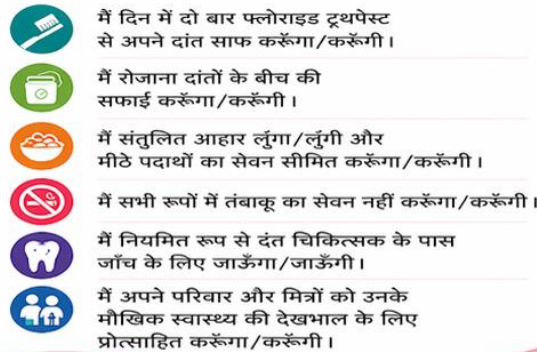 मैं दिन में दो बार फ्लोराइड टूथपेस्ट
से अपने दांत साफ करूँगा/करूँगी।
मैं रोजाना दांतों के बीच की
सफाई करूँगा/करूँगी।
मैं संतुलित आहार लुंगा/लुंगी और
मीठे पदार्थों का सेवन सीमित करूँगा/करूँगी।
मैं सभी रूपों में तंबाकू का सेवन नहीं करूँगा/करूँगी।
मैं नियमित रूप से दंत चिकित्सक के पास
जाँच के लिए जाऊँगा/जाऊँगी।
मैं अपने परिवार और मित्रों को उनके
मौखिक स्वास्थ्य की देखभाल के लिए
प्रोत्साहित करूँगा/करूँगी।